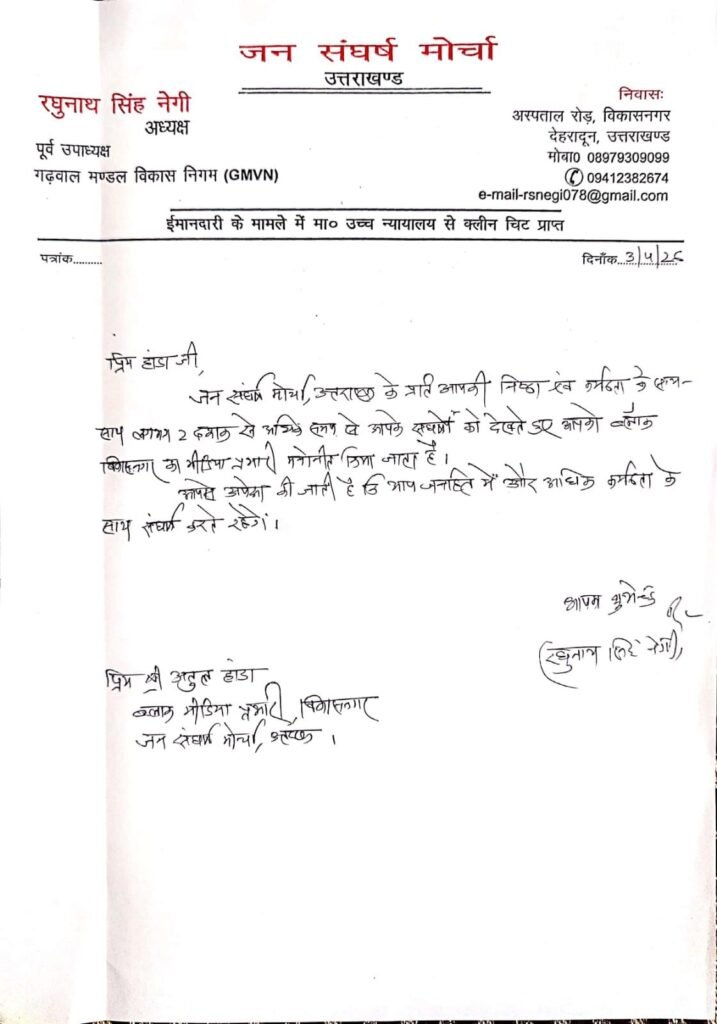 जन संघर्ष मोर्चा
उत्तराखण्ड
रघुनाथ सिंह नेगी
अध्यक्ष
पूर्व उपाध्यक्ष
गढ़वाल मण्डल विकास निगम (GMVN)
निवासः
अस्पताल रोड़, विकासनगर
देहरादून, उत्तराखण्ड
मोबा0 08979309099
09412382674
e-mail-rsnegi078@gmail.com
ईमानदारी के मामले में मा० उच्च न्यायालय से क्लीन चिट प्राप्त
पत्रांक..........
दिनाँक...3/4/26
प्रिय हांडा जी,
जन संघर्ष मोर्चा, उत्तराखण्ड के प्रति आपकी निष्ठा एवं कर्मठता के साथ-
साथ लगभग 2 दशक से अधिक समय से आपके संघर्षों को देखते हुए आपको ब्लॉक
विकासनगर का मीडिया प्रभारी मनोनीत किया जाता है।
आपसे अपेक्षा की जाती है कि आप जनहित में और अधिक कर्मठता के
साथ संघर्ष करते रहेंगे।
आपका शुभेच्छु
(रघुनाथ सिंह नेगी)
प्रिय श्री अतुल हांडा
ब्लाक मीडिया प्रभारी, विकासनगर
जन संघर्ष मोर्चा, उत्तराखण्ड।